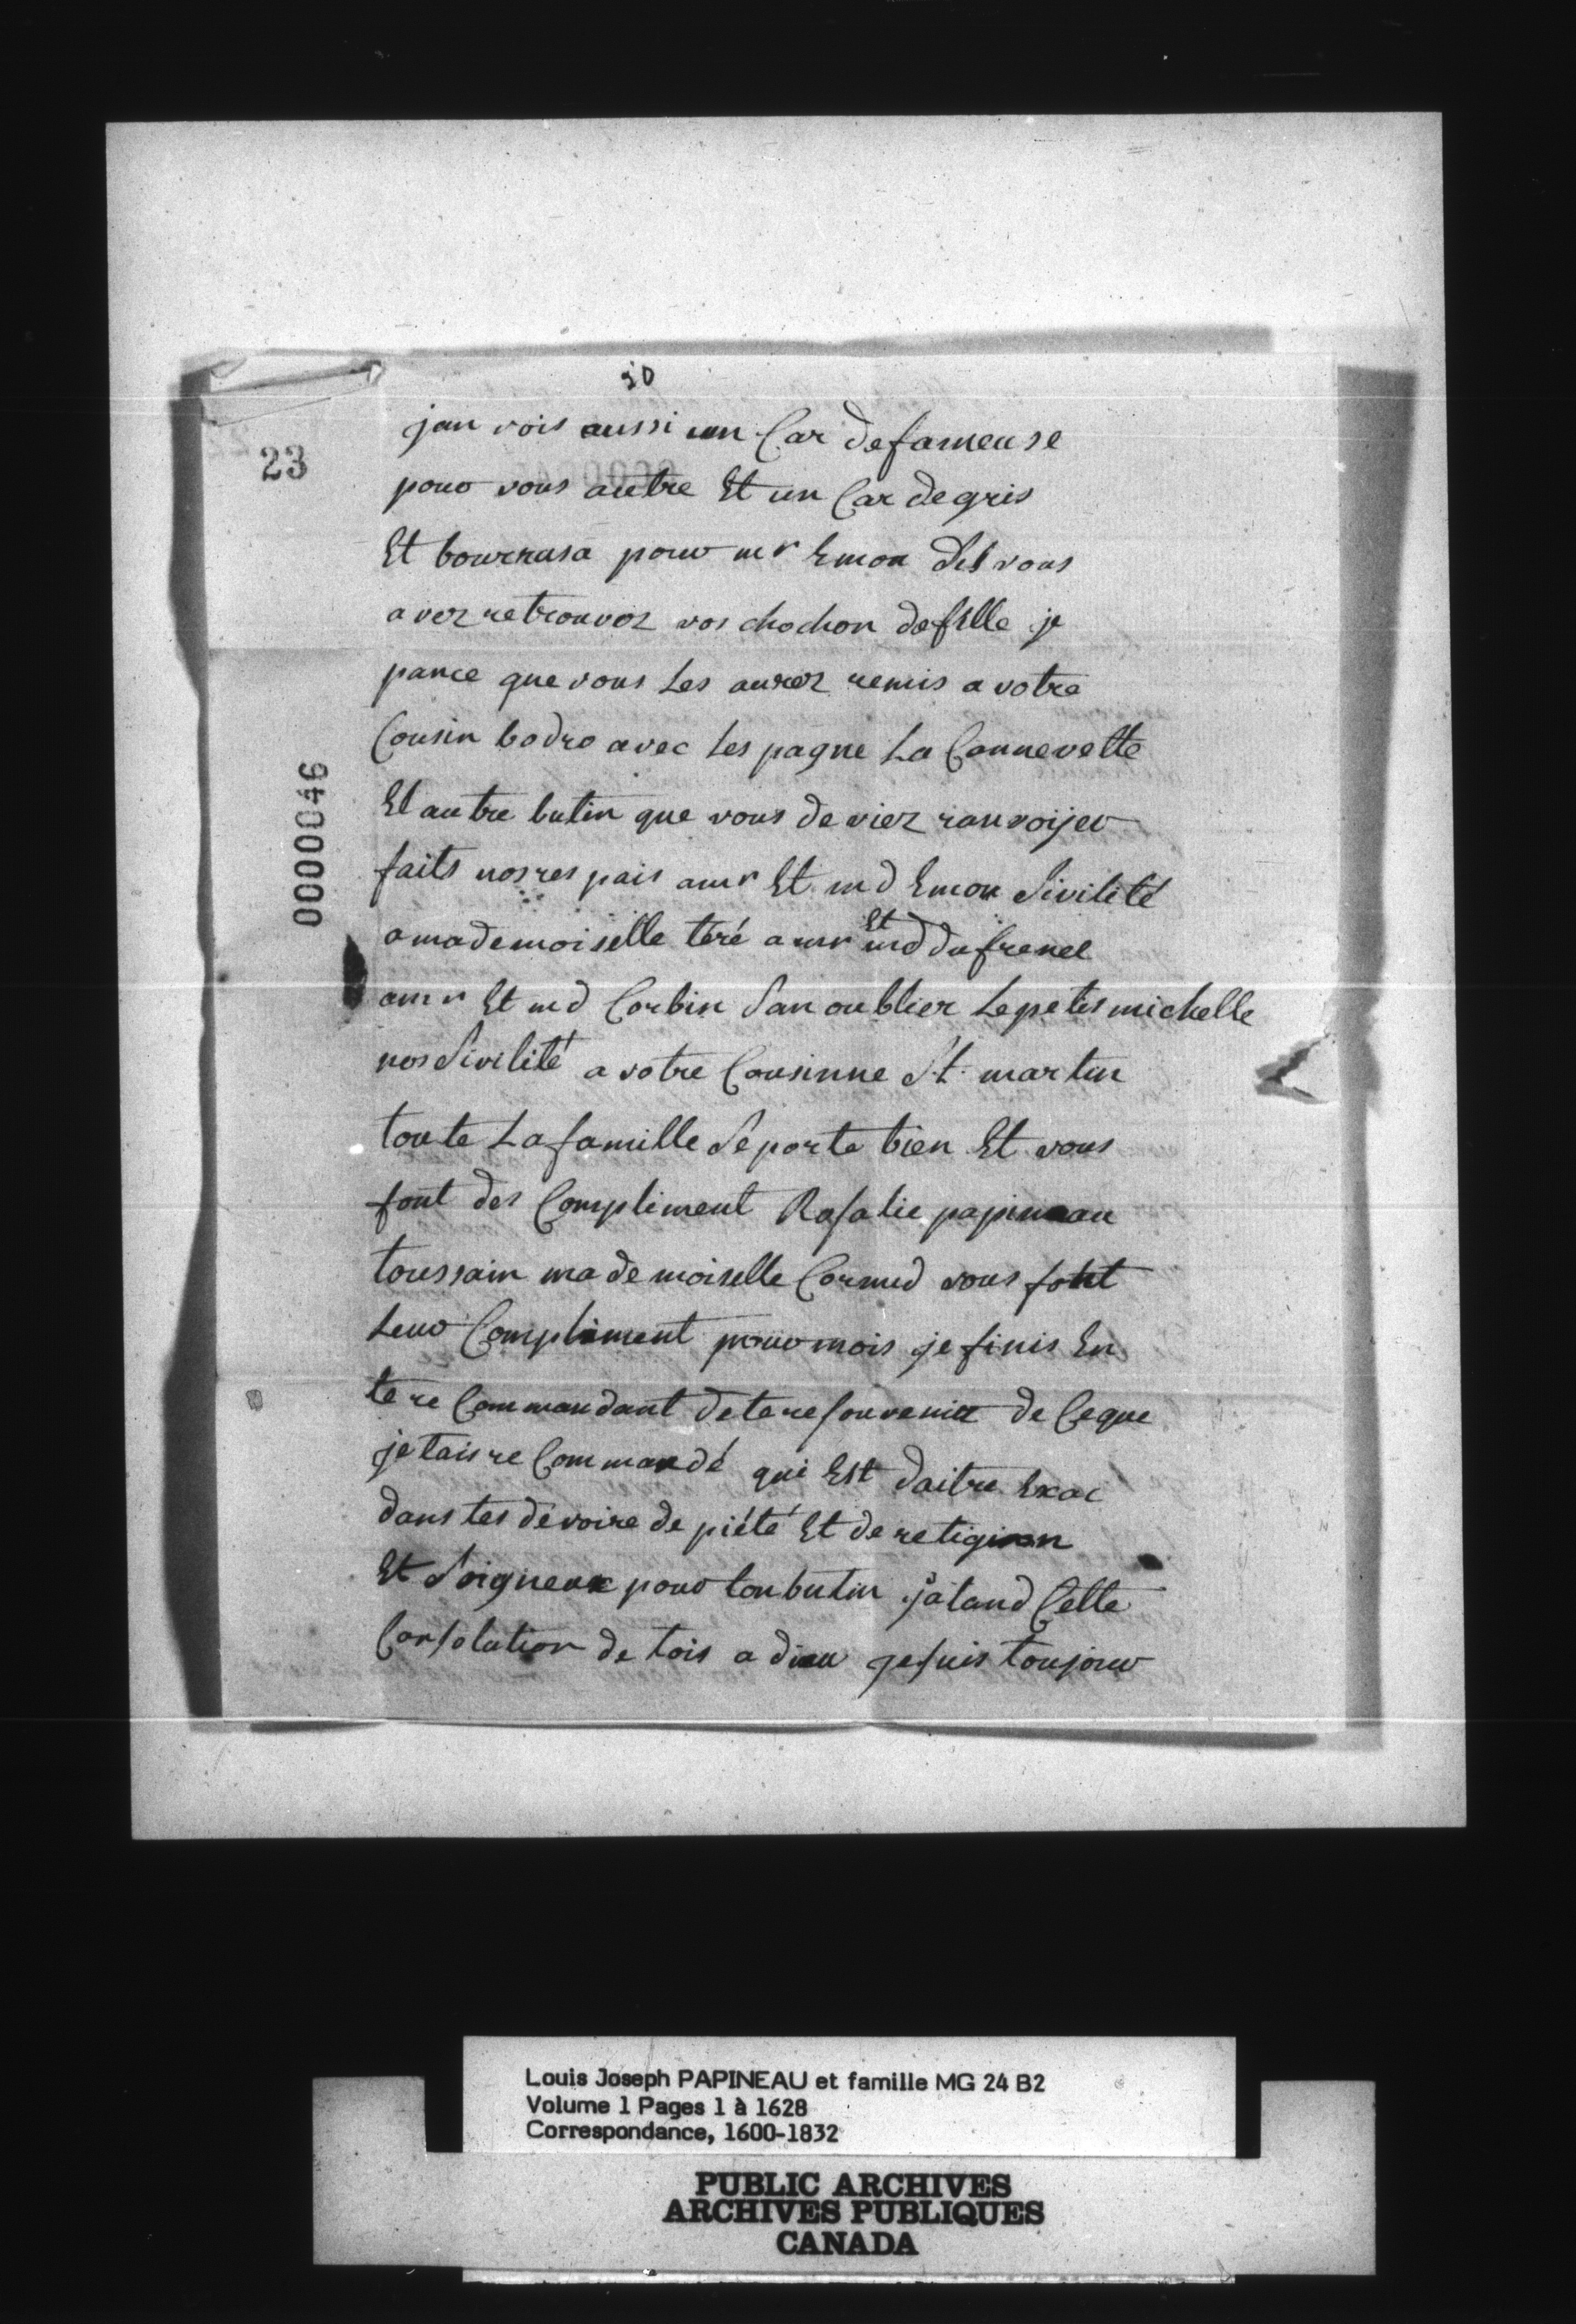 50
23
jan vois aussi un Car defameuse
pour vous autre Et un Car degris
Et bourrasa pour mr Emon vous
avez retrouvez vos chochon defille je
pance que vous Les aurez remis a votre
Cousin bodro avec Les pagne La Cannevette
Et autre butin que vous deviez ranvoijer
faits nos respais a mr Et md Emon Sivilité
a mademoiselle téré a mr Et md dufrenel
a mr Et md Corbin San oublier Le petis michelle
nos Sivilité a votre Cousinne St martin
toute La famille Se porte bien Et vous
font des Compliment Rosalie papineau
toussain mademoiselle vous font
Leur Compliment pour mois je finis En
te re Commandant de te resouvenir de Ceque
je tais re Commandé qui Est daitre Exac
dans tes devoire de piété Et de religion
Et Soigneux pour ton butin j'atand Cette
Consolation de tois a dieu je suis toujour
0000046
Louis Joseph PAPINEAU et famille MG 24 B2
Volume 1 Pages 1 à 1628
Correspondance, 1600-1832
PUBLIC ARCHIVES
ARCHIVES PUBLIQUES
CANADA